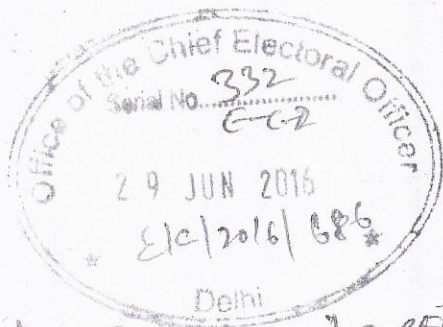 Office of the Chief Electoral Officer
Serial No. 332
29 JUN 2016
E/C/2016/686
Delhi